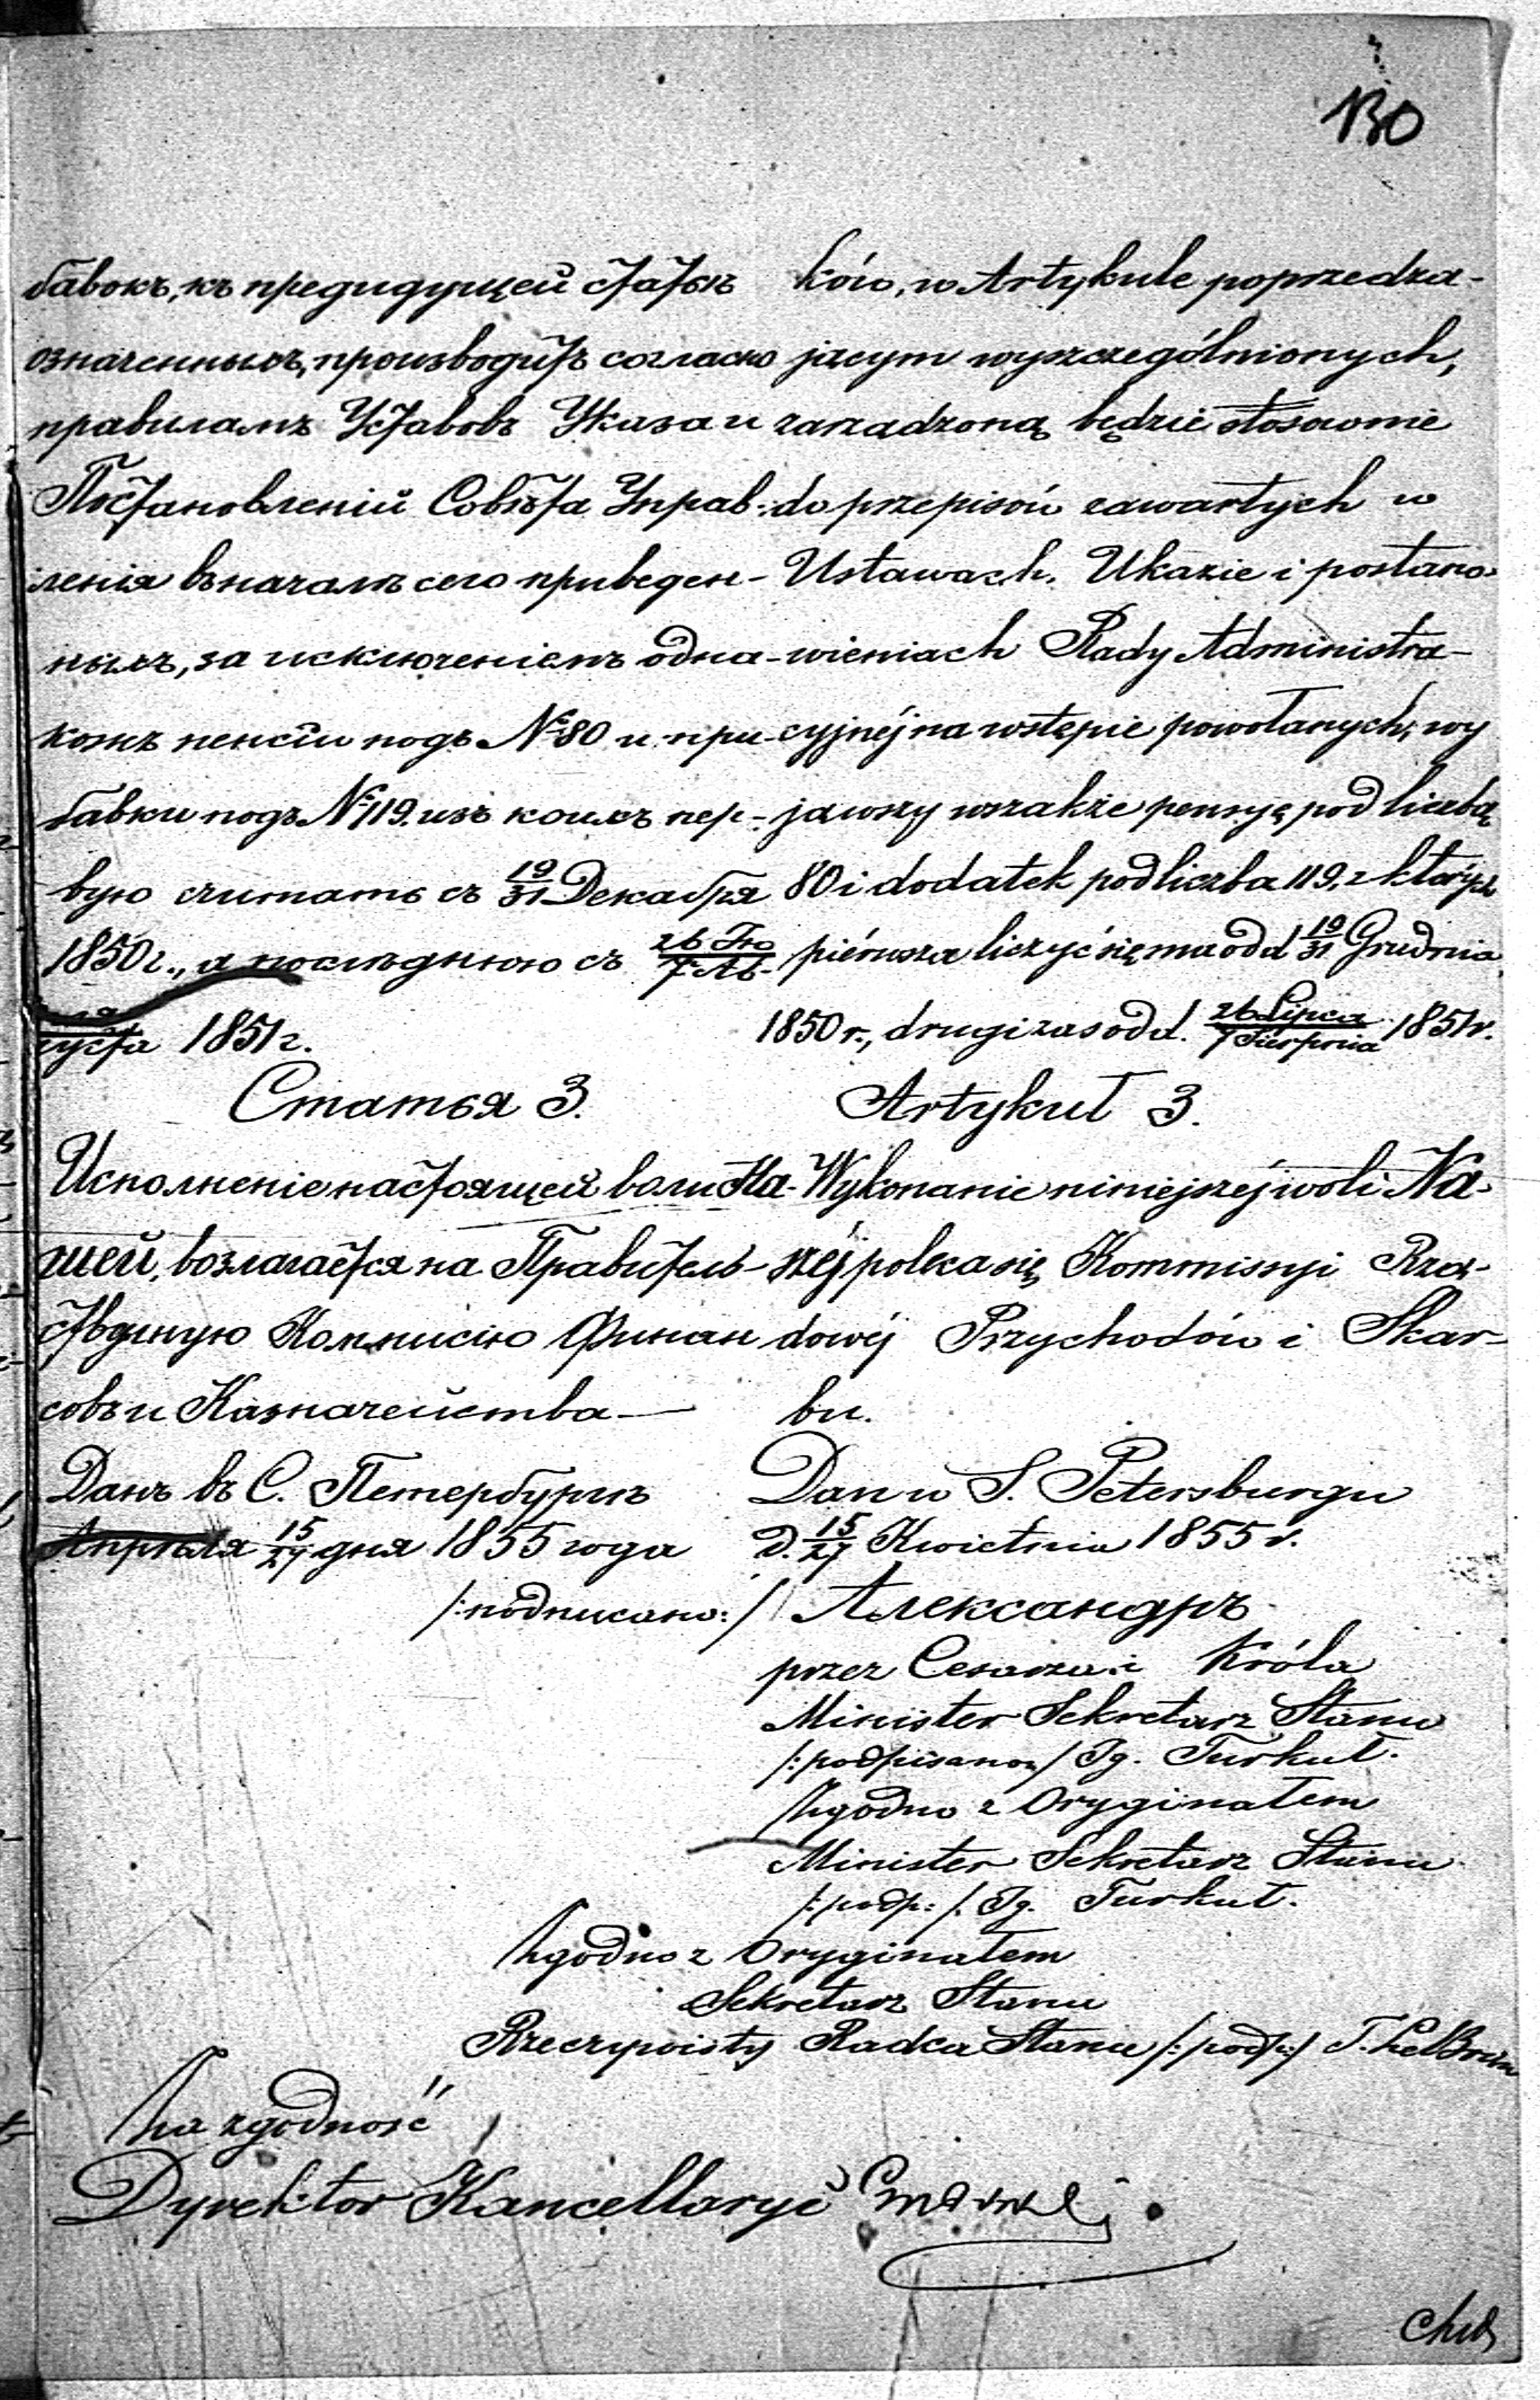 130
бавокъ, въ предидущей статьѣ
означенныхъ, производить согласно
правиламъ Уставовъ Указа и
Постановленій Совѣта Управ-
ленія въ началѣ сего приведен-
ныхъ, за исключеніемъ одна-
кожъ пенсіи подъ № 80 и при-
бавки подъ № 119. изъ коихъ пер-
вую считать съ 19/31 Декабря
1850 г., а послѣднюю съ 26 Ію/7 Ав-
ля/густа 1851 г.
Статья 3.
Исполненіе настоящей воли На-
шей, возлагается на Правитель-
ственную Коммисію Финан
совъ и Казначейства —
Данъ въ С. Петербургѣ
Апрѣля 15/27 дня 1855 года
/:подписано:/ Александръ
ków, w Artykule poprzedza-
jącym wyszczególnionych,
zarządzoną będzie stosownie
do przepisów zawartych w
Ustawach, Ukazie i postano-
wieniach Rady Administra-
cyjnéj na wstępie powołanych, wy
jąwszy wszakże pensyę pod liczbą
80 i dodatek pod liczbą 119, z których
piérwsza liczyć się ma od d 19/31 Grudnia
1850 r., drugi zaś od d. 26 Lipca/7 Sierpnia 1851 r.
Artykuł 3.
Wykonanie niniejszéj woli Na-
széj poleca się Kommissyi Rzą-
dowéj Przychodów i Skar-
bu.
Dan w S. Petersburgu
D. 15/27 Kwietnia 1855 r.
przez Cesarza i Króla
Minister Sekretarz Stanu
/:podpisano:/ Ig. Turkuł.
Zgodno z Oryginałem
Minister Sekretarz Stanu
/:podp:/. Ig. Turkuł.
Zgodno z Oryginałem
Sekretarz Stanu
Rzeczywisty Radca Stanu /:podp:/ T. Le Brun
Za zgodność
Dyrektor Kancellaryi